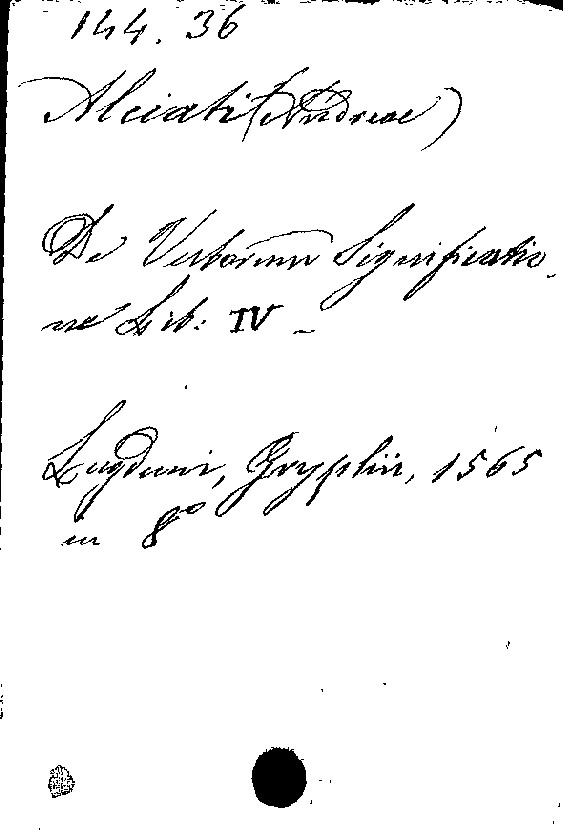 144. 36
Alciati (Andreae)
De Verborum Significatio-
ne Lib: IV -
Lugduni, Gryphii, 1565
in 8º